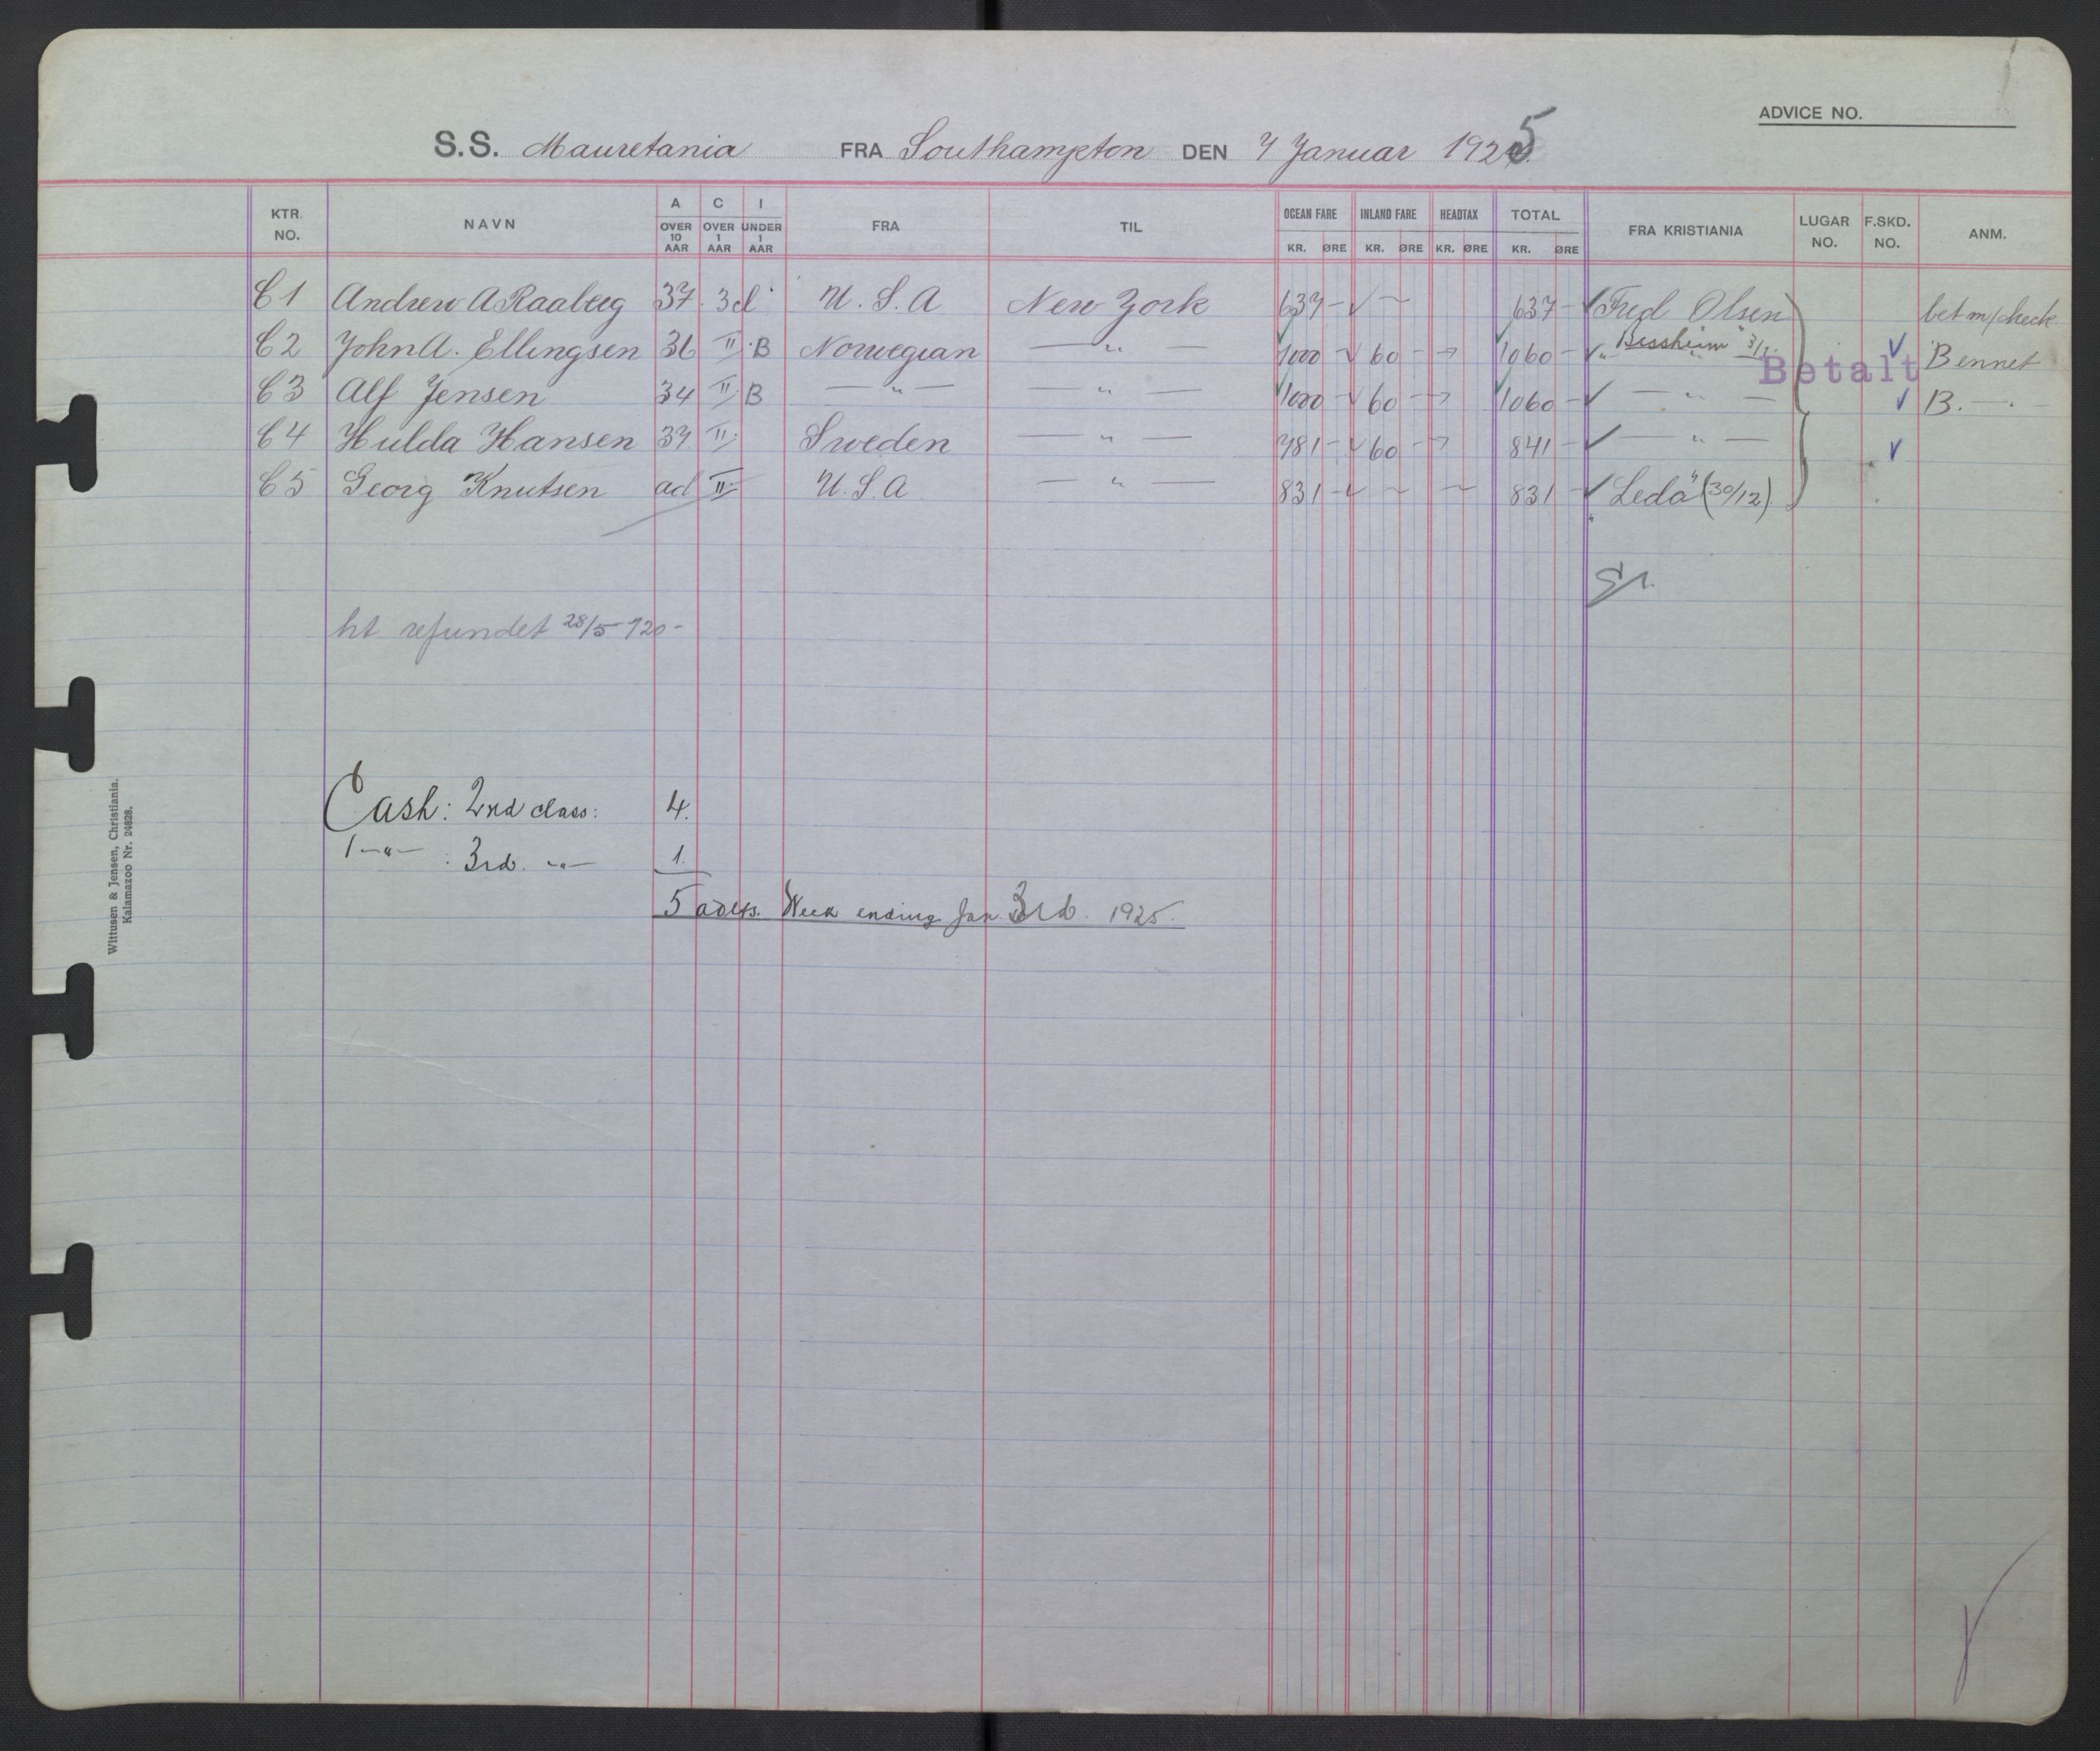 ADVICE NO.
S.S. Mauretania FRA Southampton DEN 7 Januar 1925
KTR. NO. NAVN A OVER 10 AAR C OVER 1 AAR I UNDER 1 AAR FRA TIL OCEAN FARE KR. ØRE INLAND FARE KR. ØRE HEADTAX KR. ØRE TOTAL KR. ØRE FRA KRISTIANIA LUGAR NO. F.SKD. NO. ANM.
C1 Andrew A 37 3d U.S.A New York 637 - 637 - Fred Olsen bet m/check
C2 John A. Ellingsen 36 II B Norwegian — " — 1000 - 60 - 1060 - " Bessheim" 3/1 Bennet
Betalt
C3 Alf Jensen 34 II B — " — — " — 1000 - 60 - 1060 - — " — B. — " —
C4 Hulda Hansen 37 II Sweden — " — 781 - 60 - 841 - — " —
C5 Georg Knutsen ad II U.S.A — " — 831 - 831 - "Leda" (30/12)
ht refundet 28/5 720 -
Cash: 2nd class: 4.
— " — : 3rd. — " — 1.
5 adlts. Week ending Jan. 3rd. 1925.
Wittusen & Jensen, Christiania.
Kalamazoo Nr. 24828.